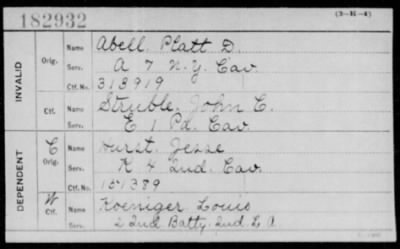 182932
(3-K-4)
INVALID
Orig.
Name Abell, Platt D.
Serv. A 7 N.Y. Cav.
Ctf. No. 313919
Ctf.
Name Struble, John C.
Serv. E 1 Pa. Cav.
DEPENDENT
C
Orig.
Name Hurst, Jesse
Serv. K 4 Ind. Cav.
Ctf. No. 151389
W
Ctf.
Name Koeniger Louis
Serv. 22nd Batty. Ind. L. A.